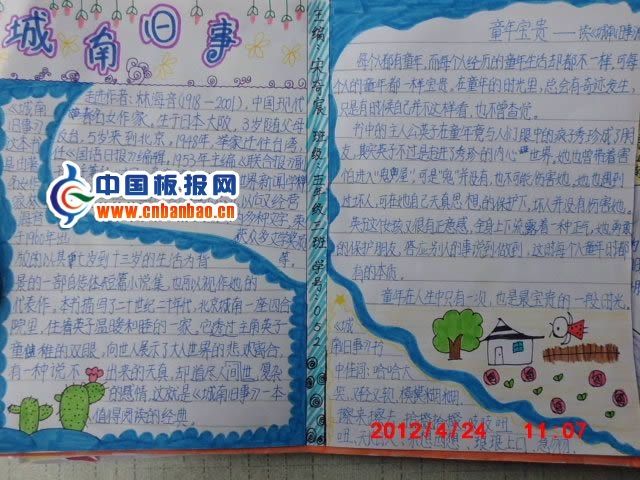 城南旧事
《城南
旧事》
这本书
是由著
走近作者:林海音(1918-2001),中国现代
著名女作家,生于日本大阪,3岁随父母
返台,5岁来到北京,1948年,举家迁往台湾,
任《国语日报》编辑,1953年主编《联合报》副
中国板报网
www.cnbanbao.cn
于1960年出
版的以其七岁到十三岁的生活为背
景的一部自传体短篇小说集,也可以视作她的
代表作。本书描写了二十世纪二十年代,北京城南一座四合
院里,住着英子温暖和睦的一家。它透过主角英子
童稚的双眼,向世人展示了大人世界的悲欢离合,
有一种说不出来的天真,却道尽人间世复杂
的感情,这就是《城南旧事》一本
值得阅读的经典。
主编: 班级:五年级二班 学号:052
童年宝贵——读《城南旧事》
每个人都有童年,而每个人经历的童年生活却都不一样,可每
个人的童年都一样宝贵,在童年的时光里,总会有奇迹发生,
只是有时候自己并不这样看,也不曾查觉。
书中的主人公英子在童年竟与人们眼中的疯子秀珍成了朋
友,其实英子不过是走进了秀珍的内心世界。她也曾带着害
怕进入“鬼舞屋”,可是“鬼”并没有,也不可能伤害她。她也遇到
过坏人,可在她自己天真思想的保护下,坏人并没有伤害她。
英子这女孩又很有正义感,全身上下流露着一种正气,她勇敢
的保护朋友,答应别人的事说到做到,这时每个人童年时都
有的本质。
童年在人生中只有一次,也是最宝贵的一段时光。
《城
南旧事》书
中佳词:哈哈大
笑、又轻又软、模模糊糊、
擦来擦去、
琅琅上口、
2012/4/24 11:07